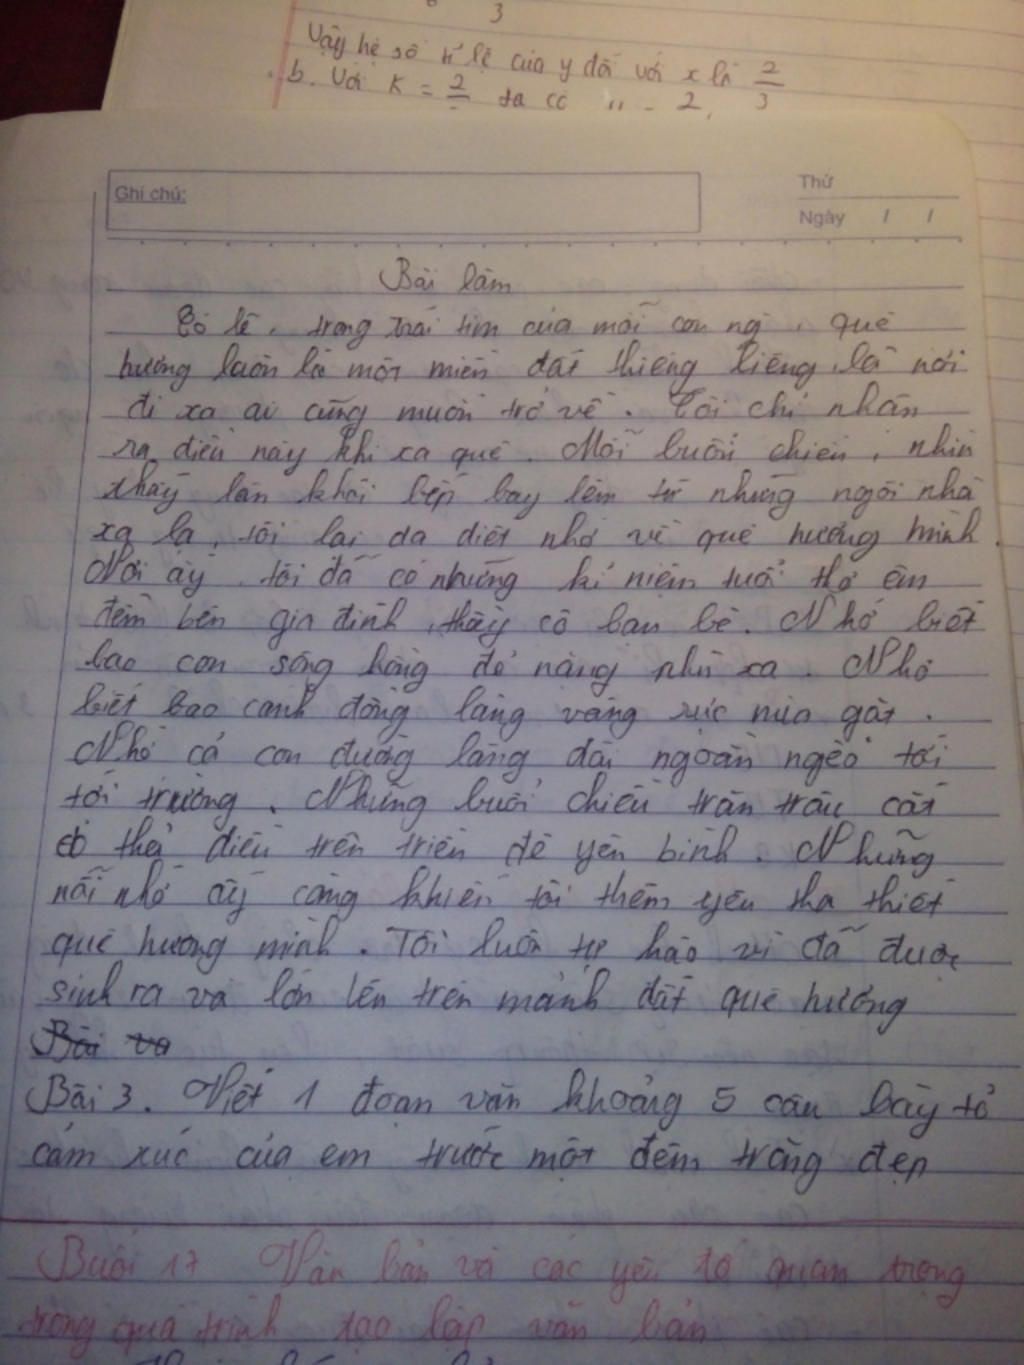 3
Vậy hệ số tỉ lệ của y đối với x là 2/3
b. Với K = 2 ta có
Ghi chú:
Thứ
Ngày / /
Bài làm
Có lẽ, trong trái tim của mỗi con ng, quê
hương luôn là một miền đất thiêng liêng, là nơi
đi xa ai cũng muốn trở về. Tôi chỉ nhận
ra điều này khi xa quê. Mỗi buổi chiều, nhìn
thấy làn khói bếp bay lên từ những ngôi nhà
xa lạ, tôi lại da diết nhớ về quê hương mình.
Nơi ấy, tôi đã có những kỉ niệm tuổi thơ êm
đềm bên gia đình, thầy cô bạn bè. Nhớ biết
bao con sông hồng đỏ nặng phù xa. Nhớ
biết bao cánh đồng làng vàng rực mùa gặt.
Nhớ cả con đường làng dài ngoằn ngèo tới
tới trường. Những buổi chiều trăn trâu cắt
cỏ thả diều trên triền đê yên bình. Những
nỗi nhớ ấy càng khiến tôi thêm yêu tha thiết
quê hương mình. Tôi luôn tự hào vì đã được
sinh ra và lớn lên trên mảnh đất quê hương
Bài
Bài 3. Viết 1 đoạn văn khoảng 5 câu bày tỏ
cảm xúc của em trước một đêm trăng đẹp
Buổi 17 Văn bản và các yếu tố quan trọng
trong quá trình tạo lập văn bản